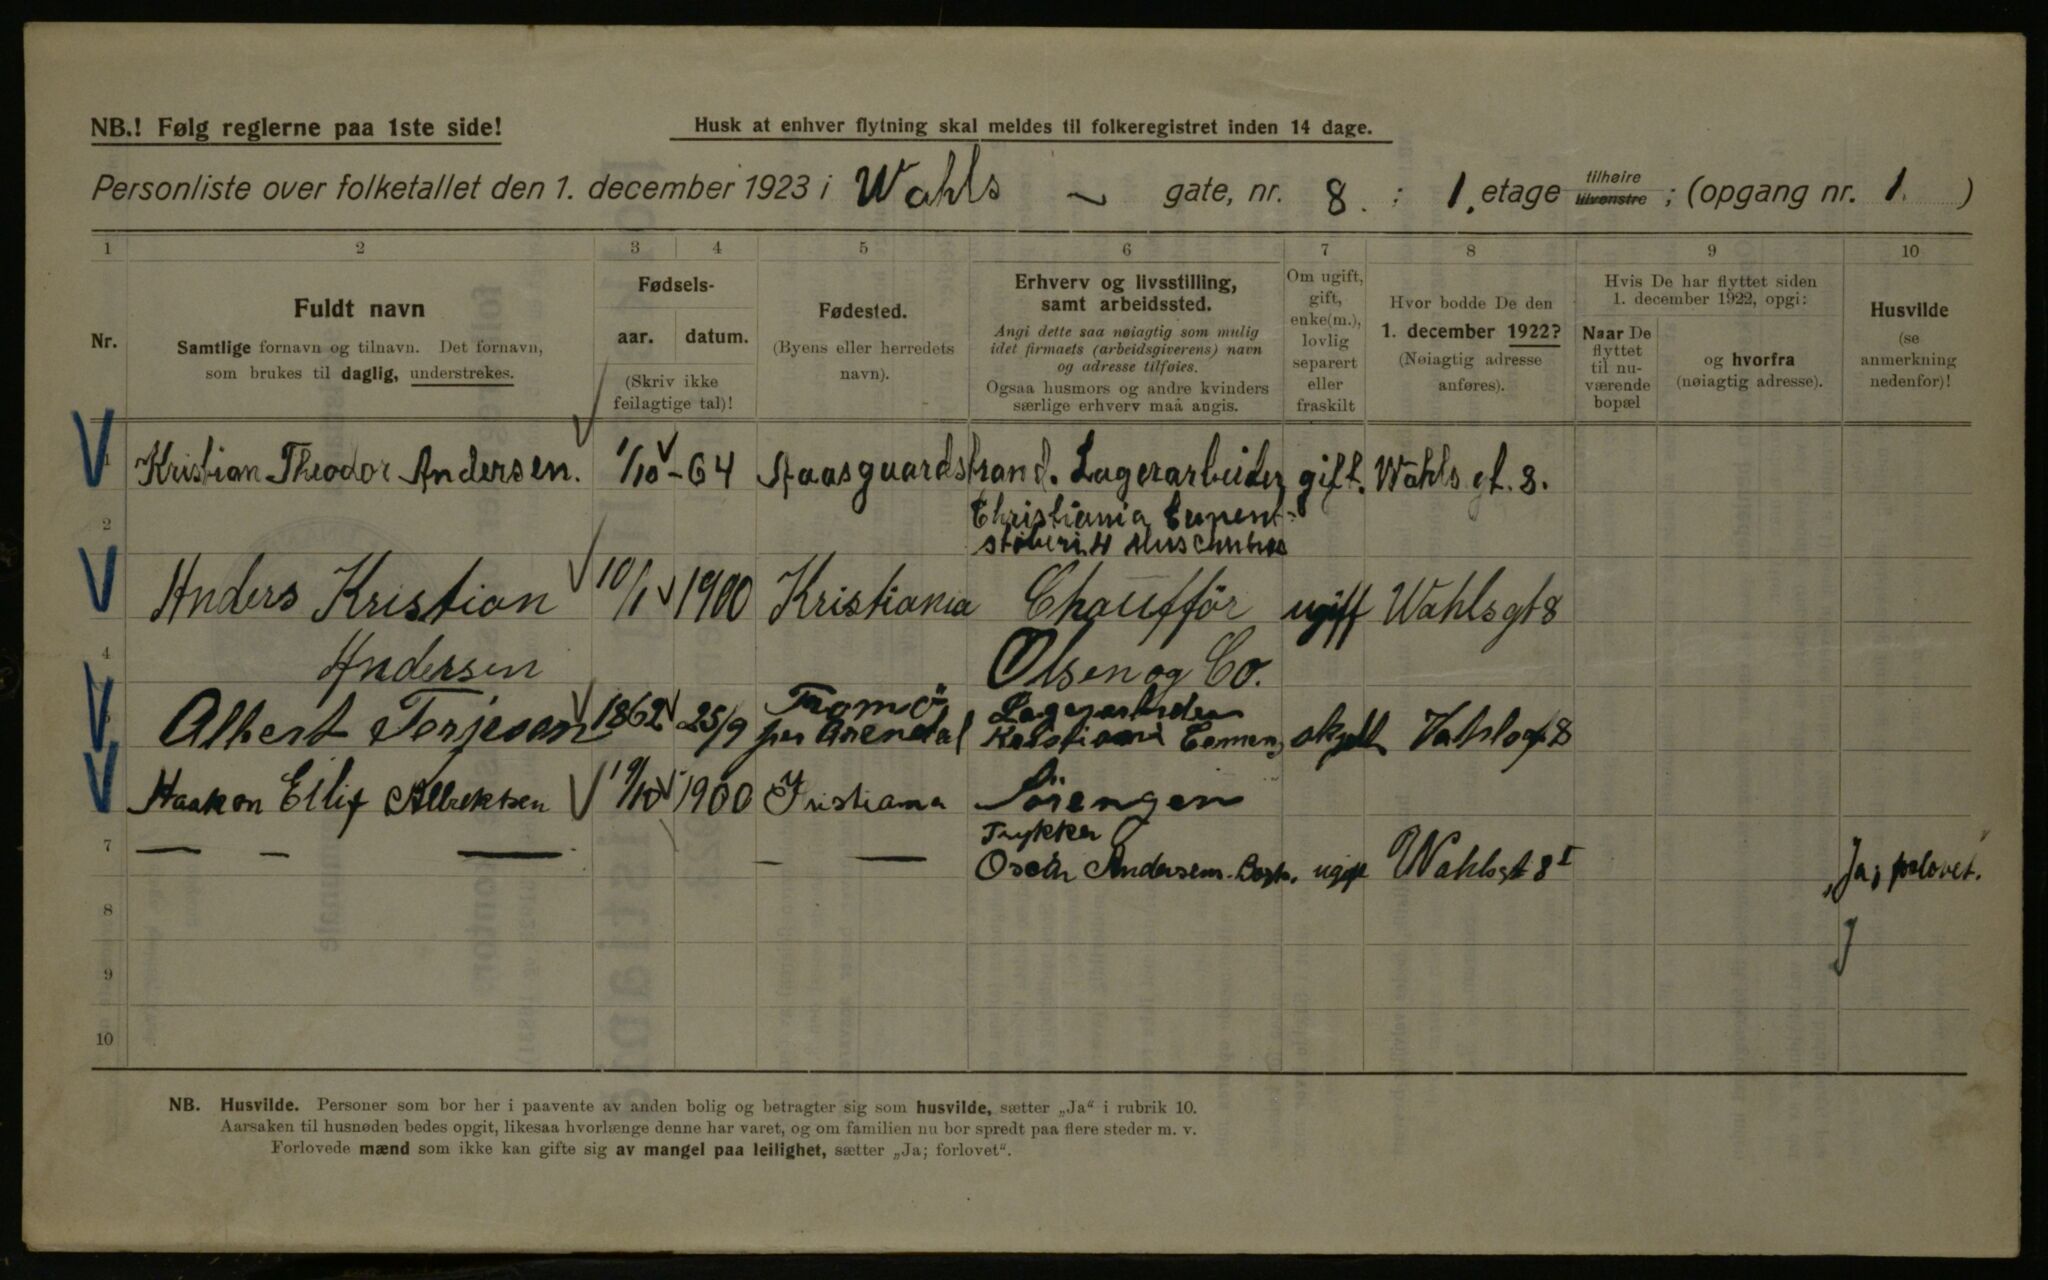 NB.! Følg reglerne paa 1ste side!
Husk at enhver flytning skal meldes til folkeregistret inden 14 dage.
Personliste over folketallet den 1. december 1923 i Wahls gate, nr. 8. ; 1. etage tilhøire tilvenstre ; (opgang nr. 1. )
1 2 3 4 5 6 7 8 9 10
Nr.
Fuldt navn
Samtlige fornavn og tilnavn. Det fornavn,
som brukes til daglig, understrekes.
Fødsels-
aar. datum.
(Skriv ikke
feilagtige tal)!
Fødested.
(Byens eller herredets
navn).
Erhverv og livsstilling,
samt arbeidssted.
Angi dette saa nøiagtig som mulig
idet firmaets (arbeidsgiverens) navn
og adresse tilføies.
Ogsaa husmors og andre kvinders
særlige erhverv maa angis.
Om ugift,
gift,
enke(m.),
lovlig
separert
eller
fraskilt
Hvor bodde De den
1. december 1922?
(Nøiagtig adresse
anføres).
Hvis De har flyttet siden
1. december 1922, opgi:
Naar De
flyttet
til nu-
værende
bopæl
og hvorfra
(nøiagtig adresse).
Husvilde
(se
anmerkning
nedenfor)!
Kristian Theodor Andersen. 1/10 - 64 Aasguardstrand. Lagerarbeider gift. Wahls gt. 8.
2 Christiania Cement-
støberi
Anders Kristian 10/1 1900 Kristiania Chaufför ugift Wahlsgt 8
4 Andersen Olsen og Co.
Albert Terjesen 1862 25/9 Tromö Lagerarbeider
per Arendal Kristiania Cemen skilt Vahlsgt 8
Haakon Eilif Albrektsen 19/10 1900 Kristiania Sörengen
7 — — — — — Trykker
Oscar Andersen Bogtr. ugift Wahlsgt 8 I „Ja; forlovet.
8
9
10
NB. Husvilde. Personer som bor her i paavente av anden bolig og betragter sig som husvilde, sætter „Ja“ i rubrik 10.
Aarsaken til husnøden bedes opgit, likesaa hvorlænge denne har varet, og om familien nu bor spredt paa flere steder m. v.
Forlovede mænd som ikke kan gifte sig av mangel paa leilighet, sætter „Ja; forlovet“.